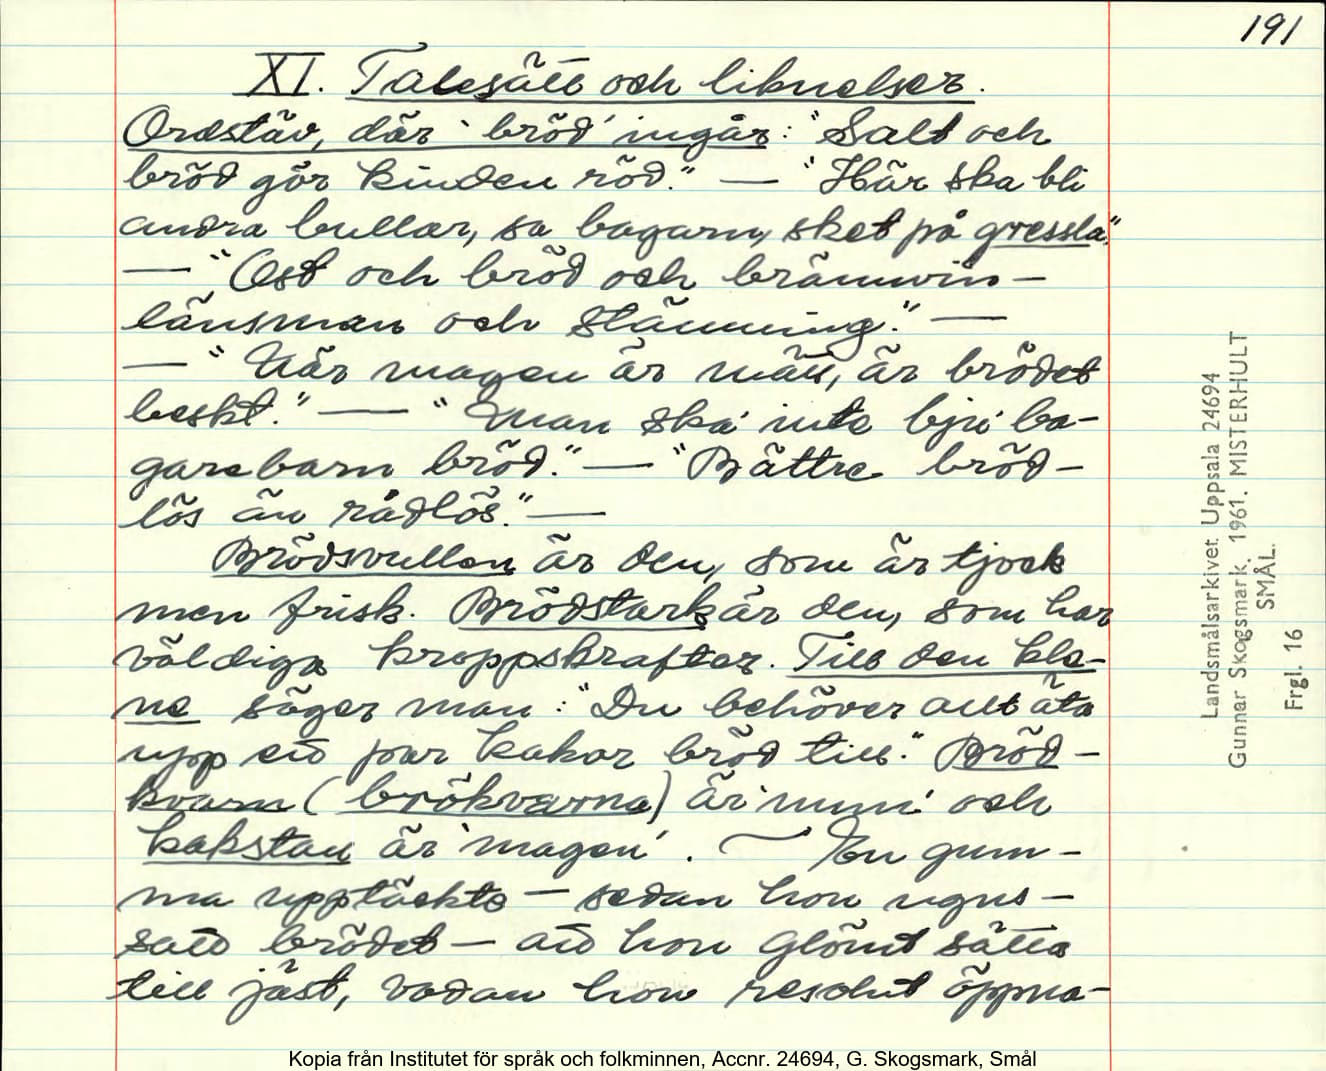 191
XI. Talesätt och liknelser.
Ordstäv, där 'bröd' ingår: "Salt och
bröd gör kinden röd." — "Här ska bli
andra bullar, sa bagarn, sket på gressla".
— "Ost och bröd och brännvin —
länsman och stämning." —
— "När magen är mätt, är brödet
beskt." — "Man ska inte bju ba-
garebarn bröd." — "Bättre bröd-
lös än rådlös." —
Brödsvullen är den, som är tjock
men frisk. Brödstark är den, som har
väldiga kroppskrafter. Till den kle-
ne säger man: "Du behöver allt äta
upp ett par kakor bröd till." Bröd-
kvarn (brökvarna) är 'mun' och
kakstan är 'magen'. — En gum-
ma upptäckte — sedan hon ugns-
satt brödet — att hon glömt sätta
till jäst, vadan hon resolut öppna-
Landsmålsarkivet Uppsala 24694
Gunnar Skogsmark. 1961. MISTERHULT
SMÅL.
Frgl. 16
Kopia från Institutet för språk och folkminnen, Accnr. 24694, G. Skogsmark, Smål